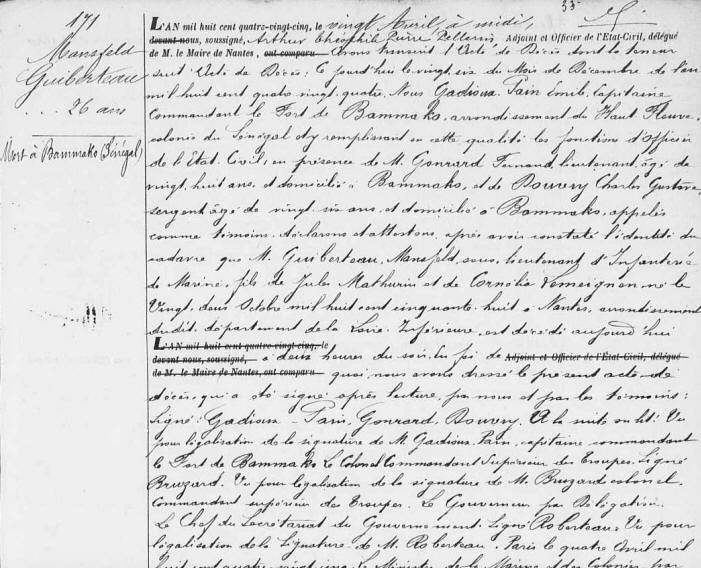 171
Mansfeld
Guiberteau
26 ans
Mort à Bammako (Sénégal)
33
L'AN mil huit cent quatre-vingt-cinq, le vingt Avril à midi,
devant nous, soussigné, Arthur Théophile Pierre Pellerin Adjoint et Officier de l'Etat-Civil, délégué
de M. le Maire de Nantes, ont comparu Avons transcrit l'Acte de Décès dont la teneur
suit Acte de Décès: Ce jourd'hui le vingt six du Mois de Décembre de l'an
mil huit cent quatre vingt quatre, Nous Gadioux-Pain Emile, Capitaine
Commandant le Fort de Bammako, arrondissement du Haut Fleuve,
colonie du Sénégal et y remplissant en cette qualité les fonctions d'officier
de l'Etat Civil, en présence de M. Gonrard Fernand, lieutenant, âgé de
vingt huit ans, et domicilié à Bammako, et de Bouvery Charles Gustave
sergent âgé de vingt six ans, et domicilié à Bammako, appelés
comme témoins, déclarons et attestons, après avoir constaté l'identité du
cadavre que M. Guiberteau, Mansfeld, sous-lieutenant d'Infanterie
de Marine, fils de Jules Mathurin et de Cornélia Lemeignen, né le
Vingt deux Octobre mil huit cent cinquante huit à Nantes, arrondissement
dudit, département de la Loire Inférieure, est décédé aujourd'hui
L'AN mil huit cent quatre-vingt-cinq, le
devant nous, soussigné, à deux heures du soir, En foi de Adjoint et Officier de l'Etat-Civil, délégué
de M. le Maire de Nantes, ont comparu quoi, nous avons dressé le présent acte de
décès, qui a été signé après lecture, par nous et par les témoins:
Signé: Gadioux-Pain, Gonrard, Bouvery. A la suite on lit: Vu
pour légalisation de la signature de M. Gadioux-Pain, capitaine commandant
le Fort de Bammako Le Colonel Commandant Supérieur des Troupes. Signé
Bruzard. Vu pour légalisation de la signature de M. Bruzard colonel
Commandant supérieur des Troupes. Le Gouverneur par Délégation.
Le Chef du Secrétariat du Gouvernement. Signé Roberteau. Vu pour
légalisation de la Signature de M. Roberteau. Paris le quatre Avril mil
huit cent quatre vingt cinq. le Ministre de la Marine et des Colonies, par